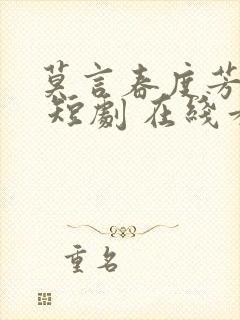 莫言春度芳
短劇 在綫
重名